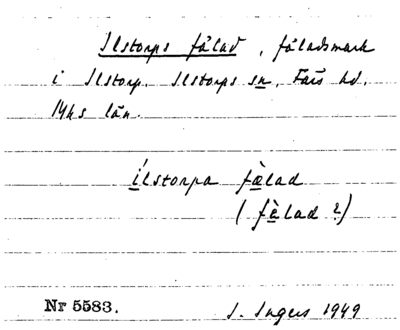 Ilstorps fålad, fåladsmark
i Ilstorp. Ilstorps sn, Färs hd.
Mhs län.
ílstorpa fæ̀lad
(fæ̀lad?)
Nr 5583. I. Ingers 1949